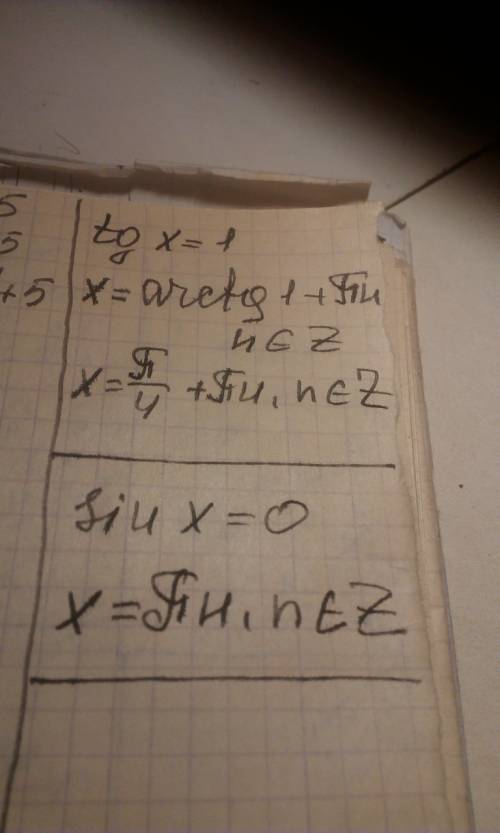 5
5
+5
tg x = 1
x = arctg 1 + πn
n ∈ Z
x = π/4 + πn, n ∈ Z
sin x = 0
x = πn, n ∈ Z